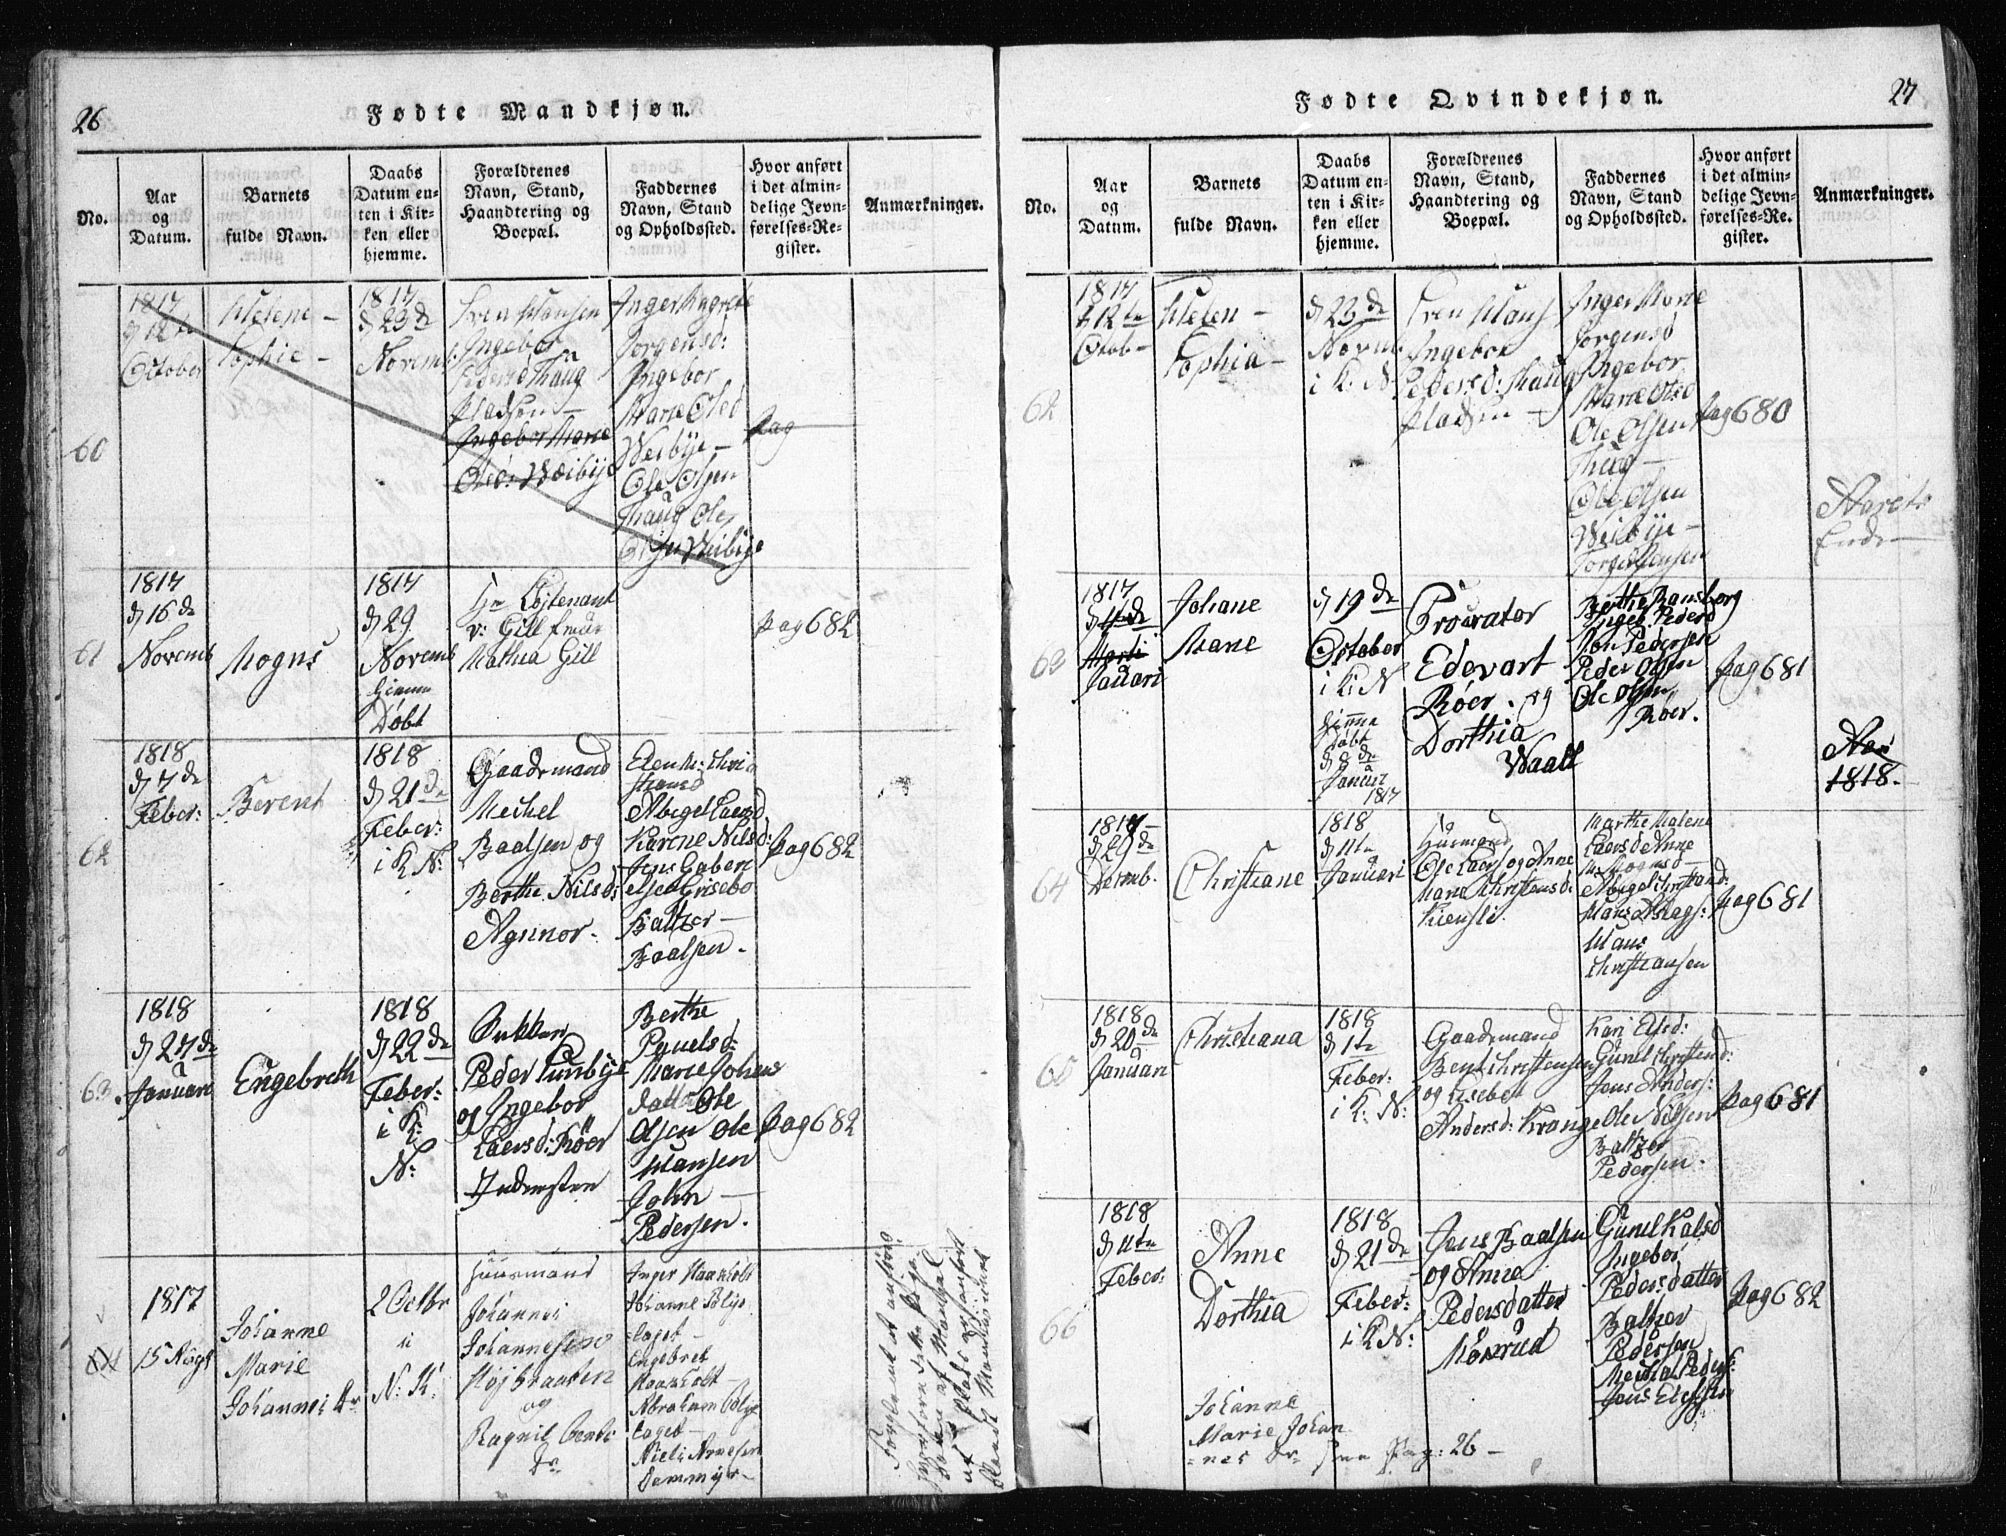 26
Fødte Mandkjøn.
No.
Aar
og
Datum.
Barnets
fulde Navn.
Daabs
Datum en-
ten i Kir-
ken eller
hjemme.
Forældrenes
Navn, Stand,
Haandtering og
Boepæl.
Faddernes
Navn, Stand
og Opholdssted.
Hvor anført
i det almin-
delige Jevn-
førelses-Re-
gister.
Anmærkninger.
60
1817
d 12te
October
Helene -
Sophie -
1817
d 23de
Novemb:
Sven Hansen
Ingebor
Pedersd Thaug
Pladsen -
Ingebor Marie
Olsd: Weibye
Inger Magrete
Jorgensd:
Ingebor
Marie Olsd
Weibye -
Ole Olsen
Thaug Ole
Olsen Weibye
Pag
61
1817
d 16de
Novemb
Mogns
1817
d 29
Novemb
Hjemme
Døbt
Hr Løjtenant
v: Gill
Mathia Gill
Pag 682
62
1818
d 7de
Feber:
Berent
1818
d 21de
Feber:
i K: N:
Gaadsmand
Mechel
Baalsen og
Berthe Nilsd:
Agnnor.
Elen M: Chri
stansd
Abigel Laersd
Karine Nilsd:
Jens Gaberi
elsen Grisebo
Baltzer -
Baalsen.
Pag 682
63
1818
d 24de
Januari
Engebreth
1818
d 22de
Feber:
i K:
N:
Peder Sunbye
og Ingebor
Laersd: Röer
Berthe
Pauelsd:
Marie Johans
datter Ole
Olsen Ole
Hansen
John -
Pedersen.
Pag 682
1817
15 Augs
Johanne
Marie
Johannes Dr
2 Octbr
i
N: K:
Huusmand
Johannes
Johannesen
Højbraaten
og
Ragnil Bents
Dr
Inger Haakholt
Johanne Blys
laget -
Engebret
Haakholt -
Abraham Blys
laget -
Niels Arnesen
Dammyr -
27
Fødte Qvindekjøn.
No.
Aar
og
Datum.
Barnets
fulde Navn.
Daabs
Datum en-
ten i Kir-
ken eller
hjemme.
Forældrenes
Navn, Stand,
Haandtering og
Boepæl.
Faddernes
Navn, Stand
og Opholdssted.
Hvor anført
i det almin-
delige Jevn-
førelses-Re-
gister.
Anmærkninger.
62
1817
d 12te
Octob -
Helen -
Sophia -
d 23de
Novmb
i K: N
Sven Hans
Ingebor
Pedersd: Thaug
Pladsen -
Inger Marie
Jorgensd
Ingebor
Marie Olsd
Ole Olsen
Thaug -
Ole Olsen
Weibye -
Jorgen Hansen
Pag 680
Aarets
Ende -
63
1817
Januari
Johane
Marie
d 19de
October
i K: N
Hjemme
Døbt
d 8de
Januar
1817
Procurator
Edevart
Röer. og
Dorthia
Waall
Berthe Ransborg
Ingeb. Pedersd
Jon Pedersen
Peder Olsen
Ole Olsen
Röer.
Pag 681
Aar
1818.
64
1817
d 29de
Decemb.
Christiane
1818
d 11te
Januari
Husmand
Ole Laers og Anne
Maria Christensd:
Kiensli
Marthe Malene
Laersd Anne
M: Mognsd -
Abigel Christiansd:
Hans
Hans
Christiansen
Pag 681
65
1818
d 20de
Januari
Christiana
1818
d 1te
Feber:
i K: N:
Gaadsmand
Bent Christensen
og Lisebet
Andersd: Krange
Kari Elsd:
Gunel Christensd:
Jens Anders:
Ole Nilsen
Baltzer
Pedersen.
Pag 681
66
1818
d 11te
Feber:
Anne
Dorthia
1818
d 21de
Feber:
i K: N:
Jens Baalsen
og Anne
Pedersdatter
Mosrud
Gunel Kalsd
Ingebor
Pedersdatter
Baltzer
Pedersen
Mechal Peders:
Jens Elefsen
Pag 682
Johanne
Marie Johan
=nes Dr see Pag: 26 -